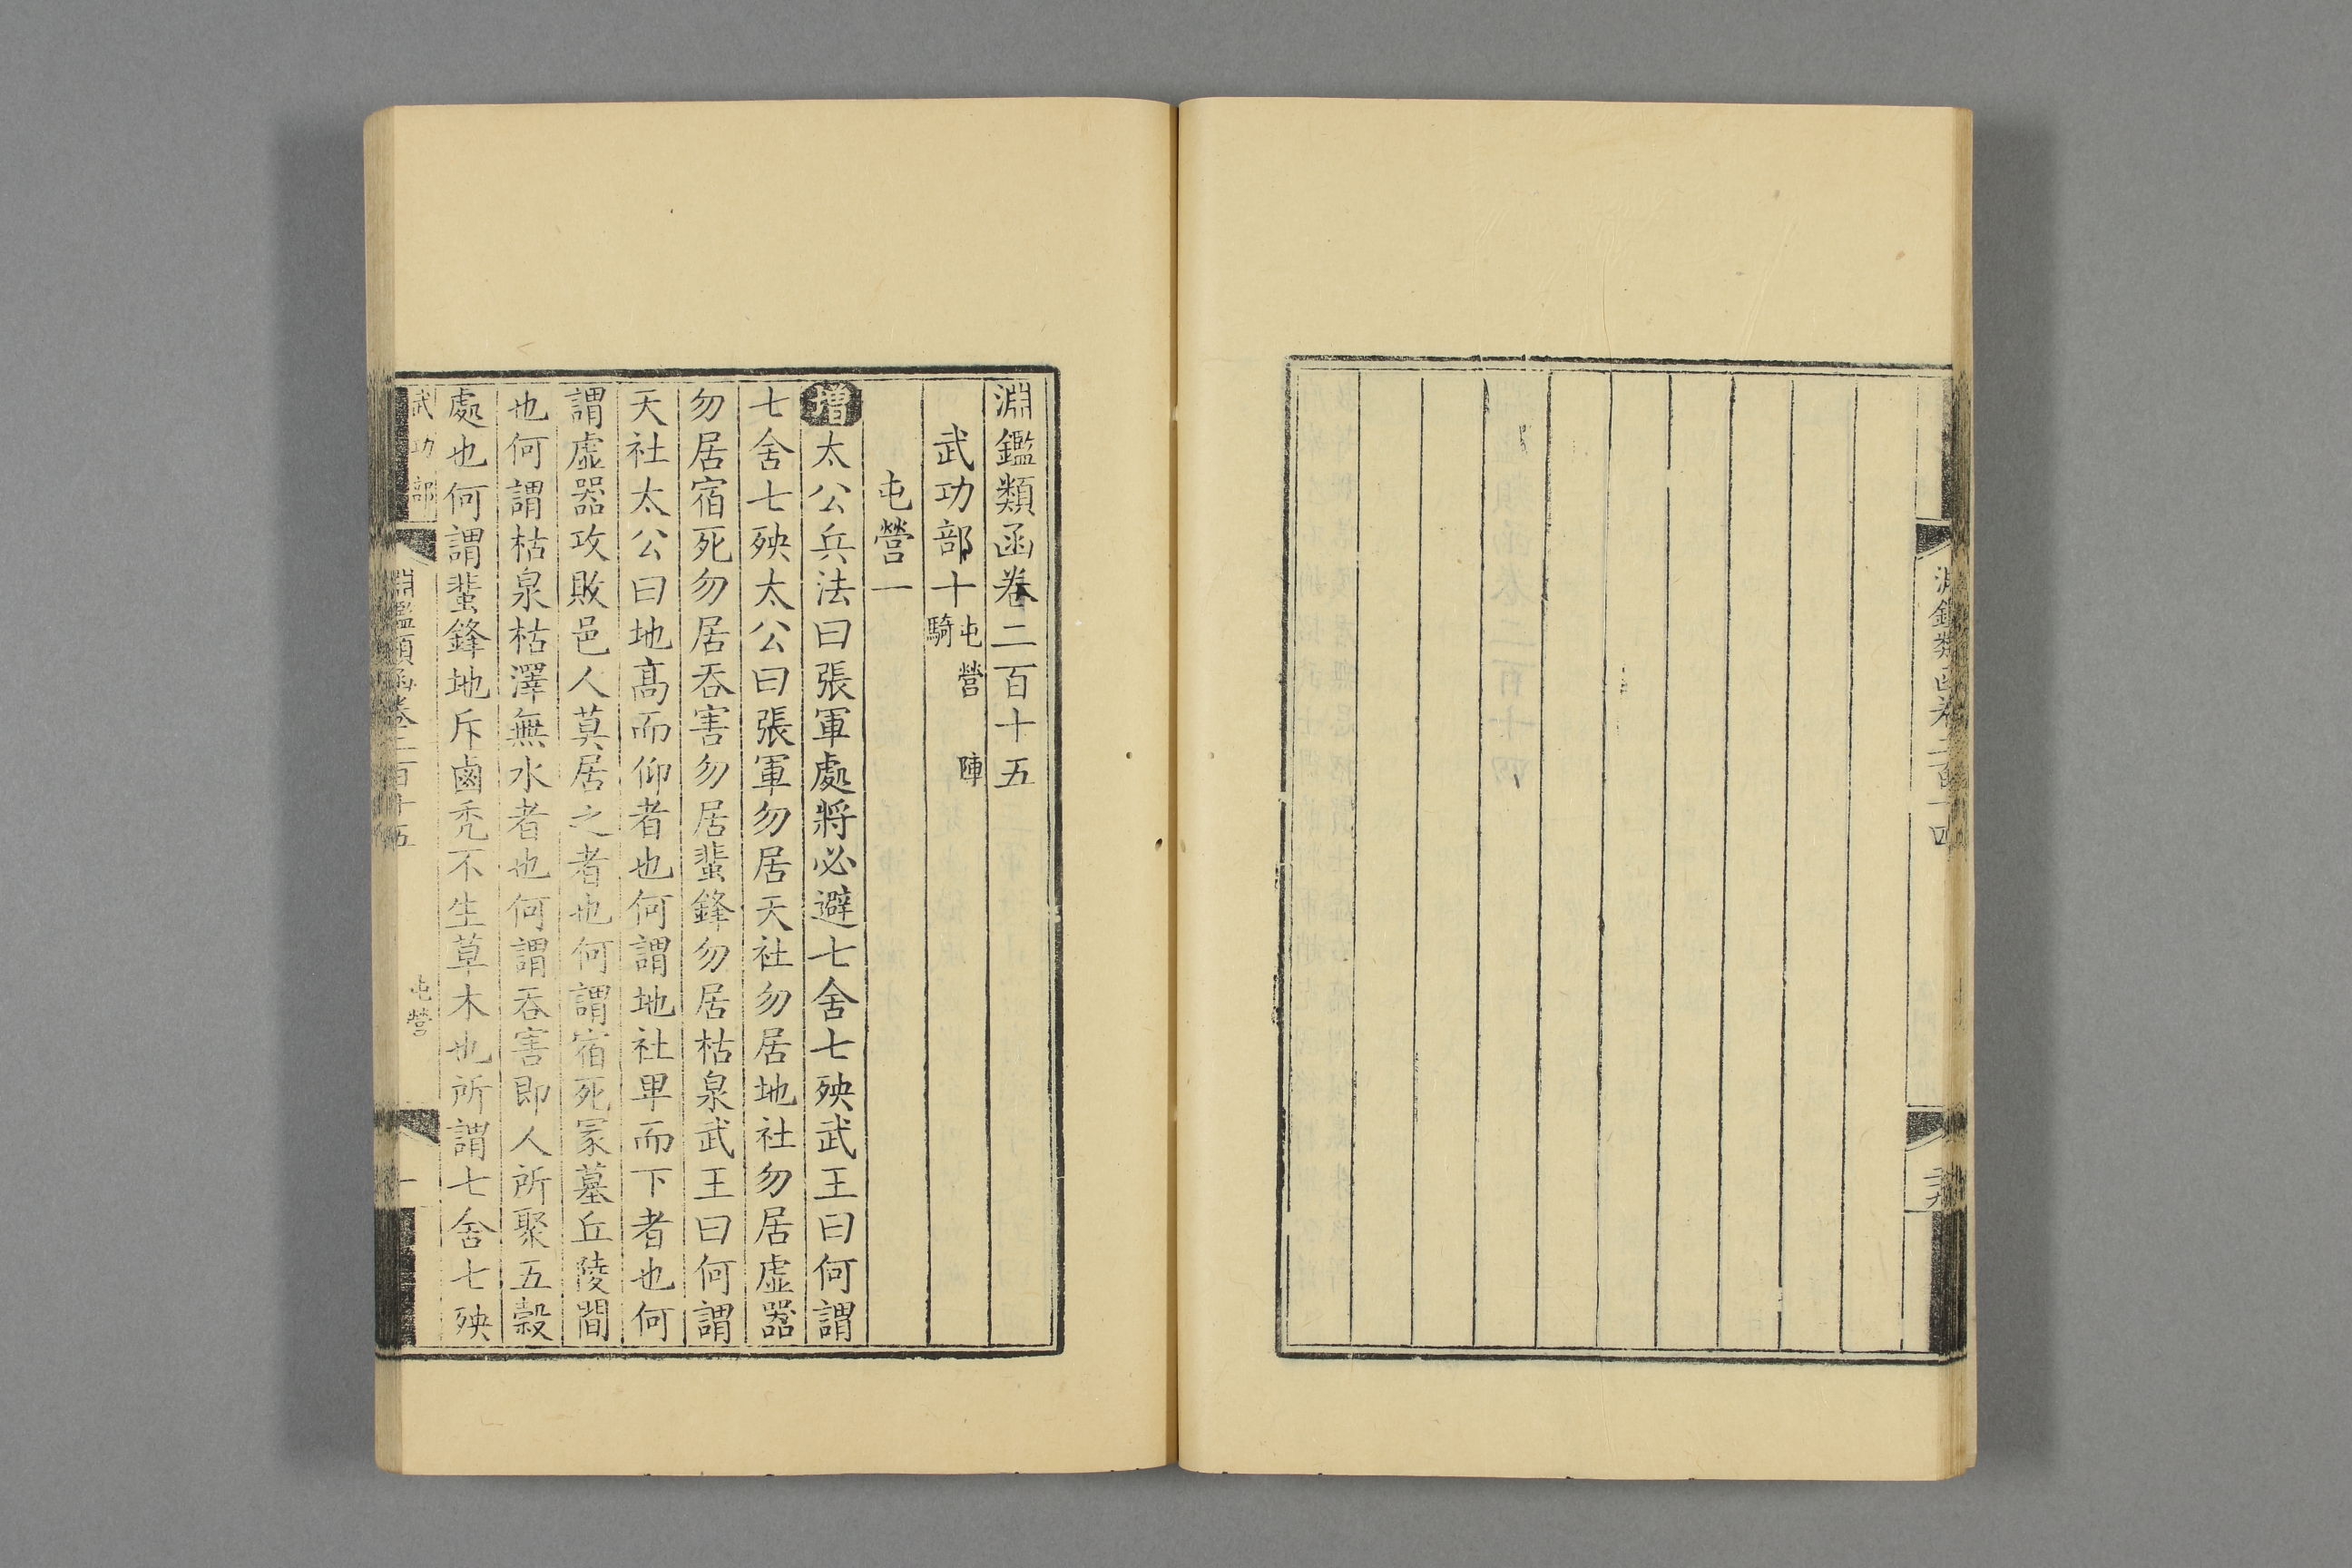 淵鑑類函卷二百十四
淵鑑類函卷二百十五
武功部十屯營 陣 騎
屯營一
增太公兵法曰張軍處將必避七舍七殃武王曰何謂
七舍七殃太公曰張軍勿居天社勿居地社勿居虛器
勿居宿死勿居吞害勿居蜚鋒勿居枯泉武王曰何謂
天社太公曰地高而仰者也何謂地社卑而下者也何
謂虛器攻敗邑人莫居之者也何謂宿死冢墓丘陵間
也何謂枯泉枯澤無水者也何謂吞害即人所聚五穀
處也何謂蜚鋒地斥鹵禿不生草木也所謂七舍七殃
武功部
淵鑑類函卷二百十五
屯營
一